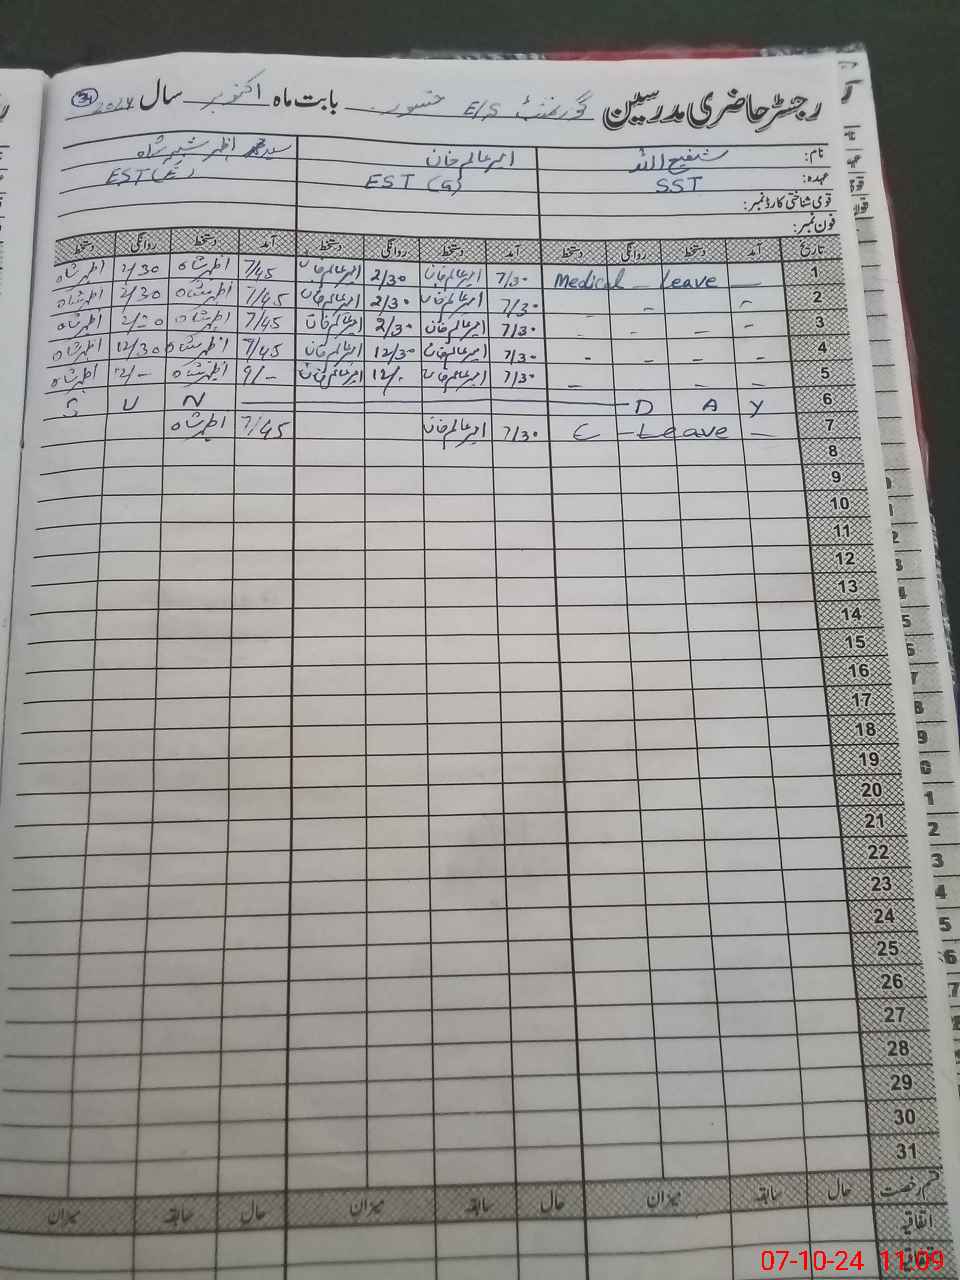 رجسٹر حاضری مدرسین گورنمنٹ E/S بابت ماہ اکتوبر سال 2024 34
نام: شفیع اللہ امیر عالم خان سید اظہر شبیر شاہ
عہدہ: SST EST (G) EST
قومی شناختی کارڈ نمبر:
فون نمبر:
تاریخ آمد دستخط روانگی دستخط آمد دستخط روانگی دستخط آمد دستخط روانگی دستخط
1 — Leave — Medical 7/30 امیر عالم خان 2/30 امیر عالم خان 7/45 اظہر شاہ 2/30 اظہر شاہ
2 - - 7/30 امیر عالم خان 2/30 امیر عالم خان 7/45 اظہر شاہ 2/30 اظہر شاہ
3 - - - - 7/30 امیر عالم خان 2/30 امیر عالم خان 7/45 اظہر شاہ 2/30 اظہر شاہ
4 - - - - 7/30 امیر عالم خان 12/30 امیر عالم خان 7/45 اظہر شاہ 12/30 اظہر شاہ
5 - - - 7/30 امیر عالم خان 12/- امیر عالم خان 9/- اظہر شاہ 12/- اظہر شاہ
6 S U N — D A Y
7 — Leave — C 7/30 امیر عالم خان 7/45 اظہر شاہ
8
9
10
11
12
13
14
15
16
17
18
19
20
21
22
23
24
25
26
27
28
29
30
31
قسم رخصت حال سابقہ میزان حال سابقہ میزان حال سابقہ میزان
اتفاقیہ
07-10-24 11:09